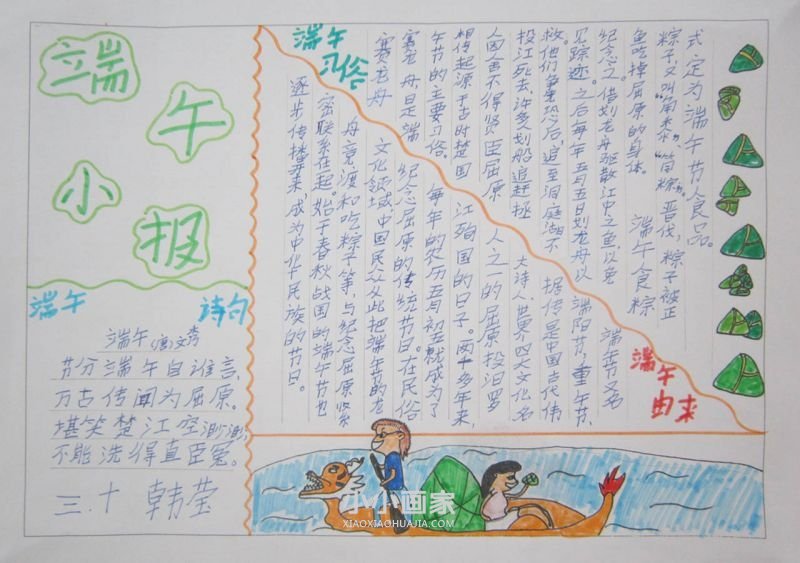 端午
小报
端午
诗句
端午 (唐)文秀
节分端午自谁言,
万古传闻为屈原。
堪笑楚江空渺渺,
不能洗得直臣冤。
三.十 韩莹
端午
习俗
赛龙舟
赛龙舟,是端
午节的主要习俗。
相传起源于古时楚国
人因舍不得贤臣屈原
投江死去,许多划船追赶拯
救他们争先恐后,追至洞庭湖不
见踪迹。之后每年五月五日划龙舟以
纪念之。借划龙舟驱散江中之鱼,以免
鱼吃掉屈原的身体。 端午食粽
粽子,又叫“角黍”、“筒粽”。晋代,粽子被正
式定为端午节食品。
端午
由来
端午节又名
端阳节、重午节,
据传是中国古代伟
大诗人、世界四大文化名
人之一的屈原投汨罗
江殉国的日子。两千多年来,
每年的农历五月初五就成为了
纪念屈原的传统节日。在民俗
文化领域,中国民众从此把端午节的龙
舟竞渡和吃粽子等,与纪念屈原紧
密联系在起。始于春秋战国的端午节也
逐步传播开来,成为中华民族的节日。
小小画家
XIAOXIAOHUAJIA.COM